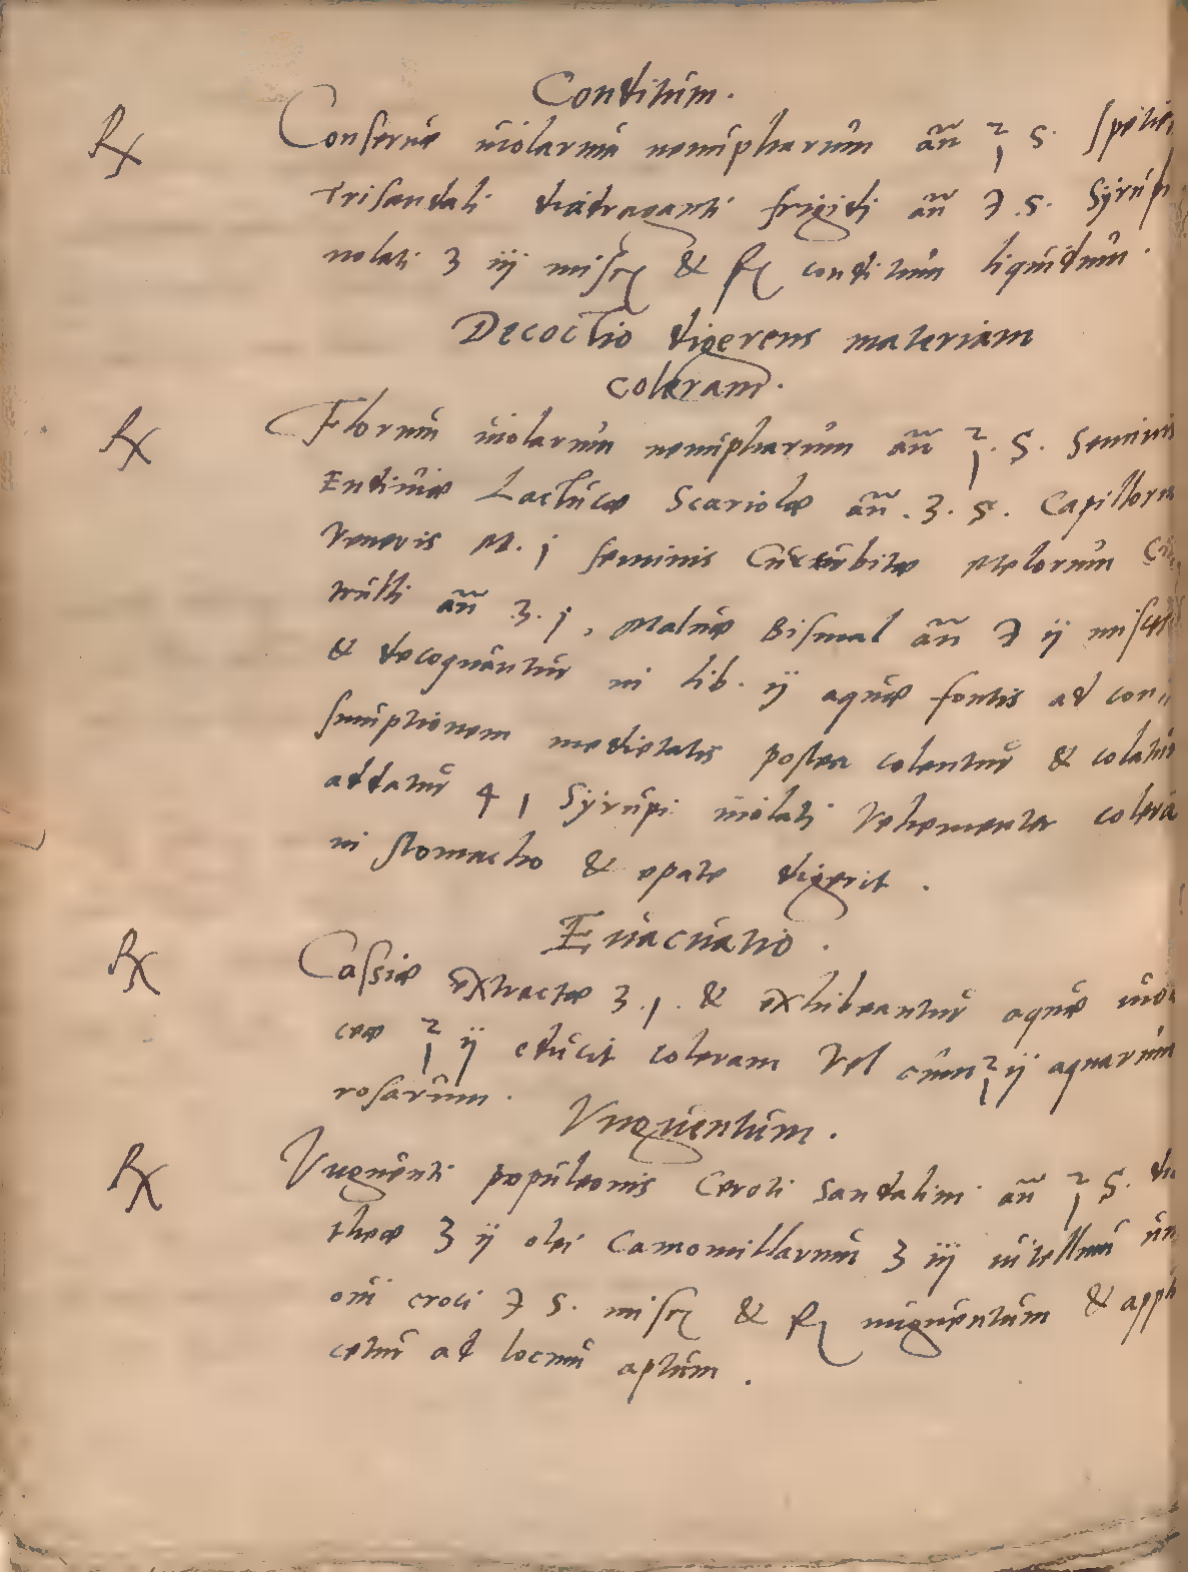 Conditum.
℞ Conserue uiolarum nenupharum añ ℥ s. spetier
Trisandali diadraganti frigidi añ ℈ .s. Syrupi
uiolati ʒ iij miscę & f. conditum liquidum.
Decoctio digerens materiam
coleram.
℞ Florum uiolarum nenupharum añ ℥. s. Seminis
Endiuiæ Lactucæ Scariolæ añ. ʒ. s. Capillorum
Veneris M. j seminis Cucurbitæ Melonum Ci
trulli añ ʒ. j, Maluæ Bismal añ ℈ ij misce
& decoquantur in lib. ij aquæ fontis ad con
sumptionem medietatis postea colentur & colatur
addatur 4 j Syrupi uiolati Vehementer colera
in stomacho & epate digerit.
Euacuatio.
℞ Cassiæ extractæ ʒ. j. & exhibeantur aquæ uiola
ceæ ℥ ij educit coleram Vel cum ℥ ij aquarum
rosarum.
Vnguentum.
℞ Vnguenti populeonis Ceroti Sandalini añ ℥ s. du
theæ ʒ ij olei Camomillarum ʒ iij uitellum un
oui croci ℈ s. misc & f. unguentum & appli
cetur ad locum aptum.